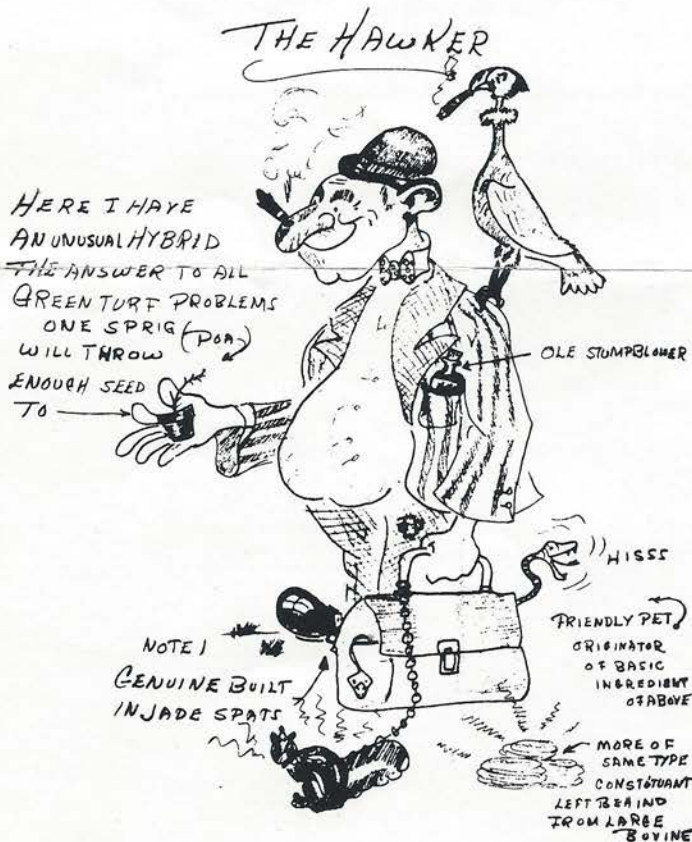 THE HAWKER
HERE I HAVE
AN UNUSUAL HYBRID
THE ANSWER TO ALL
GREEN TURF PROBLEMS
ONE SPRIG (POA)
WILL THROW
ENOUGH SEED
TO
OLE STUMPBLOWER
HISSS
FRIENDLY PET
ORIGINATOR
OF BASIC
INGREDIENT
OF ABOVE
NOTE 1
GENUINE BUILT
IN JADE SPATS
MORE OF
SAME TYPE
CONSTITUANT
LEFT BEHIND
FROM LARGE
BOVINE